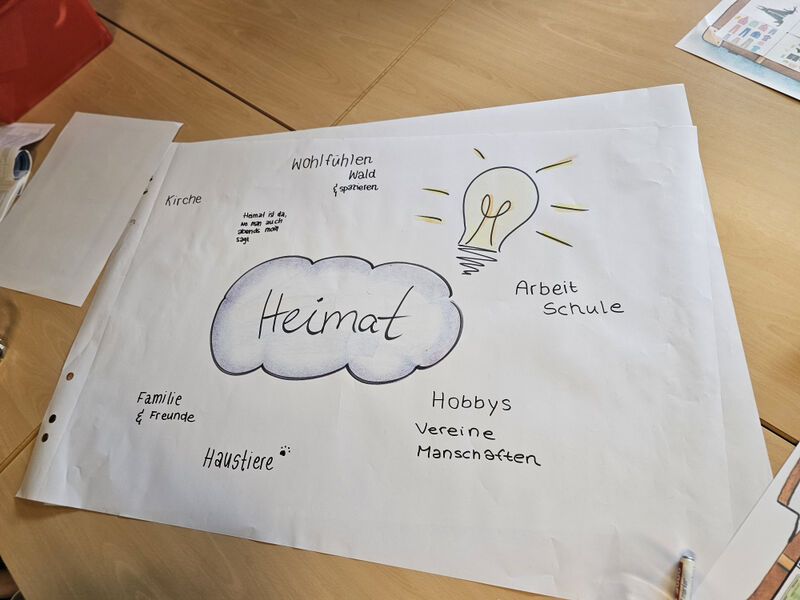 Wohlfühlen
Wald
& spazieren
Kirche
Heimat ist da,
wo man auch
abends moin
sagt
Heimat
Arbeit
Schule
Familie
& Freunde
Haustiere
Hobbys
Vereine
Manschaften